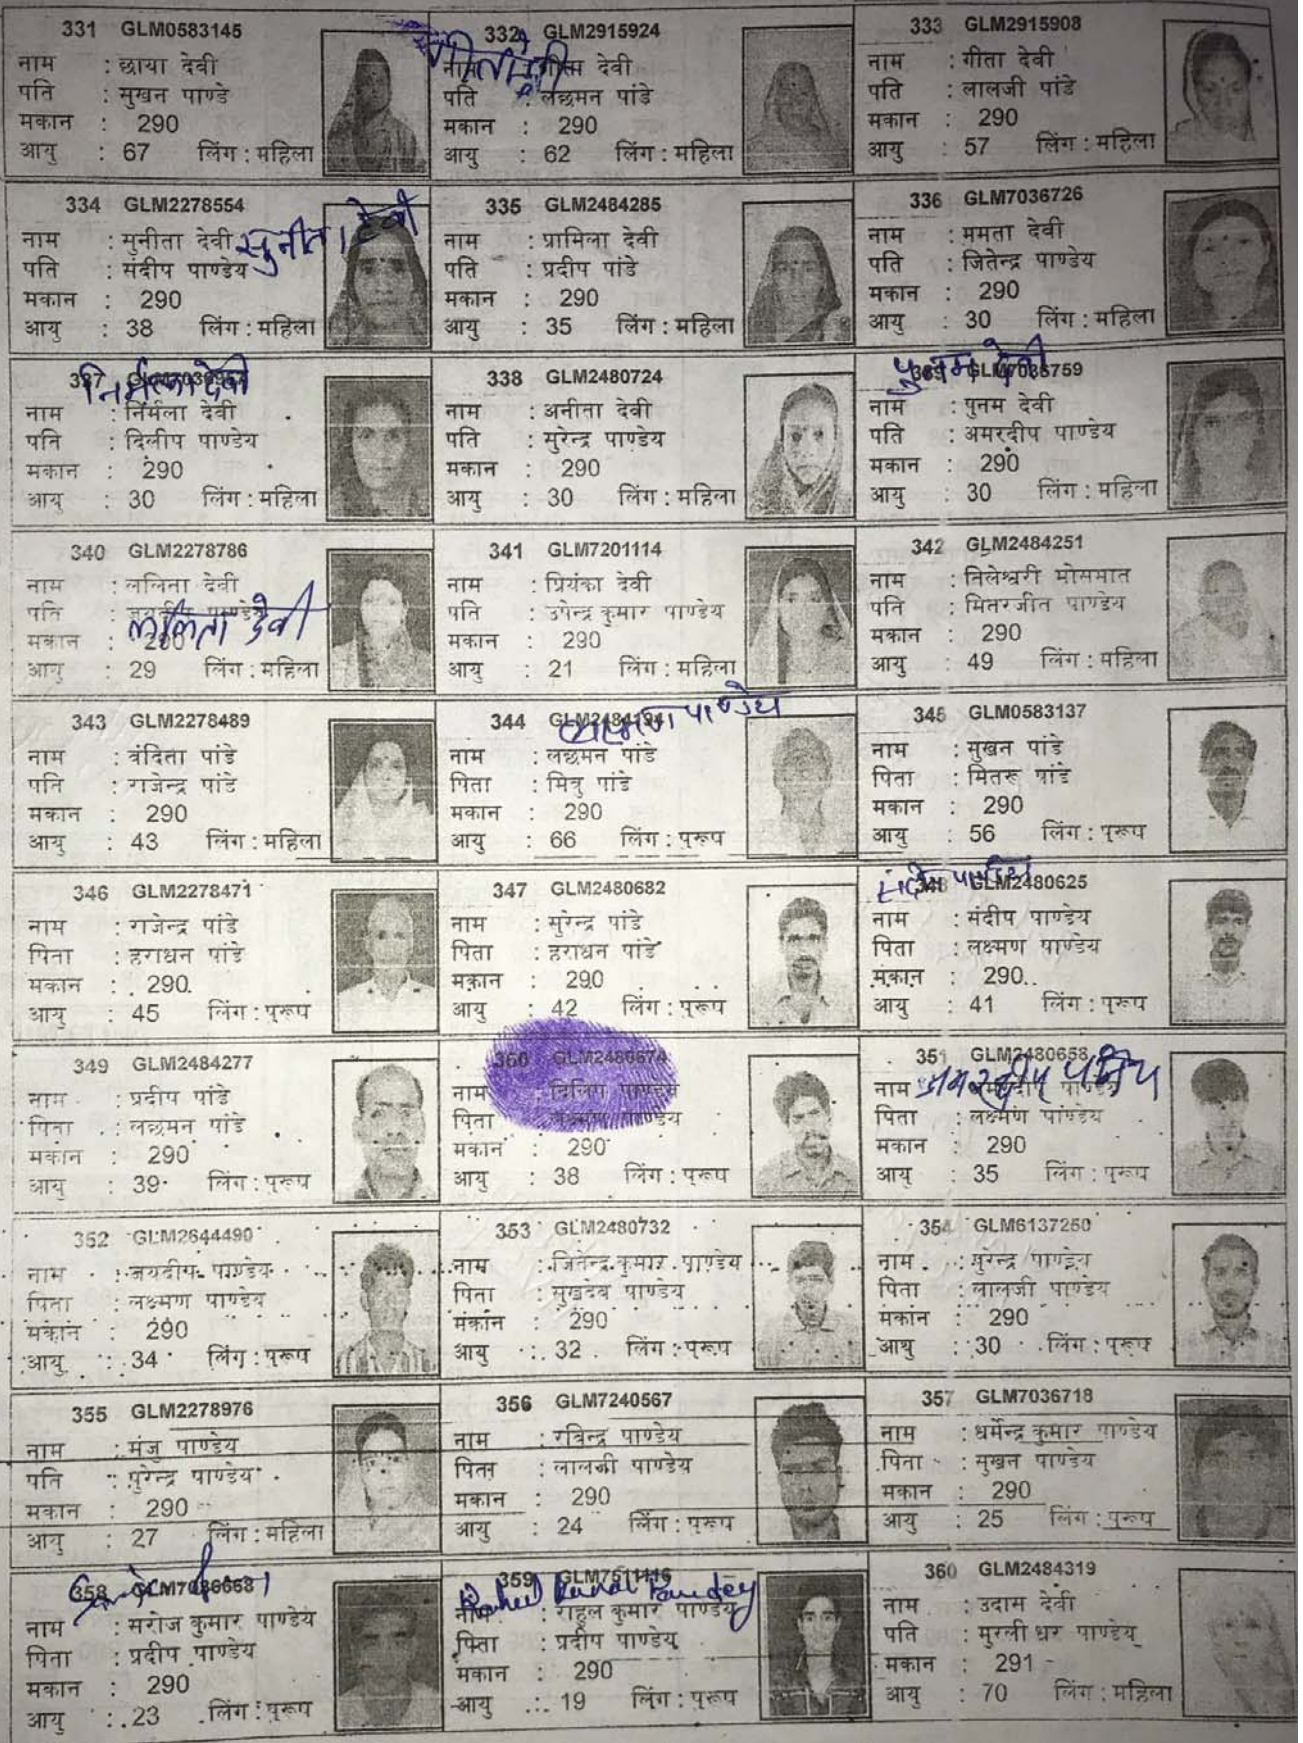 331 GLM0583145
नाम : छाया देवी
पति : सुखन पाण्डे
मकान : 290
आयु : 67 लिंग : महिला
332 GLM2915924
नाम : गीता देवी
पति : लछमन पांडे
मकान : 290
आयु : 62 लिंग : महिला
333 GLM2915908
नाम : गीता देवी
पति : लालजी पांडे
मकान : 290
आयु : 57 लिंग : महिला
334 GLM2278554
नाम : सुनीता देवी सुनीता देवी
पति : संदीप पाण्डेय
मकान : 290
आयु : 38 लिंग : महिला
335 GLM2484285
नाम : प्रामिला देवी
पति : प्रदीप पांडे
मकान : 290
आयु : 35 लिंग : महिला
336 GLM7036726
नाम : ममता देवी
पति : जितेन्द्र पाण्डेय
मकान : 290
आयु : 30 लिंग : महिला
निर्मला देवी
337
नाम : निर्मला देवी
पति : दिलीप पाण्डेय
मकान : 290
आयु : 30 लिंग : महिला
338 GLM2480724
नाम : अनीता देवी
पति : सुरेन्द्र पाण्डेय
मकान : 290
आयु : 30 लिंग : महिला
पुनम देवी
339 GLM7036759
नाम : पुनम देवी
पति : अमरदीप पाण्डेय
मकान : 290
आयु : 30 लिंग : महिला
340 GLM2278786
नाम : ललिता देवी
पति : जयदीप पाण्डेय
ललिता देवी
मकान : 290
आयु : 29 लिंग : महिला
341 GLM7201114
नाम : प्रियंका देवी
पति : उपेन्द्र कुमार पाण्डेय
मकान : 290
आयु : 21 लिंग : महिला
342 GLM2484251
नाम : तिलेश्वरी मोसमात
पति : मितरजीत पाण्डेय
मकान : 290
आयु : 49 लिंग : महिला
343 GLM2278489
नाम : वंदिता पांडे
पति : राजेन्द्र पांडे
मकान : 290
आयु : 43 लिंग : महिला
पाण्डेय
344
नाम : लछमन पांडे
पिता : मित्रु पांडे
मकान : 290
आयु : 66 लिंग : पुरूष
345 GLM0583137
नाम : सुखन पांडे
पिता : मितरू पांडे
मकान : 290
आयु : 56 लिंग : पुरूष
346 GLM2278471
नाम : राजेन्द्र पांडे
पिता : हराधन पांडे
मकान : 290
आयु : 45 लिंग : पुरूष
347 GLM2480682
नाम : सुरेन्द्र पांडे
पिता : हराधन पांडे
मकान : 290
आयु : 42 लिंग : पुरूष
348 GLM2480625
नाम : संदीप पाण्डेय
पिता : लक्ष्मण पाण्डेय
मकान : 290
आयु : 41 लिंग : पुरूष
349 GLM2484277
नाम : प्रदीप पांडे
पिता : लछमन पांडे
मकान : 290
आयु : 39 लिंग : पुरूष
350 GLM2480674
नाम : दिलिप पाण्डेय
पिता : लक्ष्मण पाण्डेय
मकान : 290
आयु : 38 लिंग : पुरूष
351 GLM2480658
नाम : अमरदीप पाण्डेय
पिता : लक्ष्मण पाण्डेय
मकान : 290
आयु : 35 लिंग : पुरूष
352 GLM2644490
नाम : जयदीप पाण्डेय
पिता : लक्ष्मण पाण्डेय
मकान : 290
आयु : 34 लिंग : पुरूष
353 GLM2480732
नाम : जितेन्द्र कुमार पाण्डेय
पिता : सुखदेव पाण्डेय
मकान : 290
आयु : 32 लिंग : पुरूष
354 GLM6137250
नाम : पुरेन्द्र पाण्डेय
पिता : लालजी पाण्डेय
मकान : 290
आयु : 30 लिंग : पुरूष
355 GLM2278976
नाम : मंजु पाण्डेय
पति : पुरेन्द्र पाण्डेय
मकान : 290
आयु : 27 लिंग : महिला
356 GLM7240567
नाम : रविन्द्र पाण्डेय
पिता : लालजी पाण्डेय
मकान : 290
आयु : 24 लिंग : पुरूष
357 GLM7036718
नाम : धर्मेन्द्र कुमार पाण्डेय
पिता : सुखन पाण्डेय
मकान : 290
आयु : 25 लिंग : पुरूष
358
नाम : सरोज कुमार पाण्डेय
पिता : प्रदीप पाण्डेय
मकान : 290
आयु : 23 लिंग : पुरूष
359 GLM7511116
Rahul Kumar Pandey
नाम : राहुल कुमार पाण्डेय
पिता : प्रदीप पाण्डेय
मकान : 290
आयु : 19 लिंग : पुरूष
360 GLM2484319
नाम : उदास देवी
पति : मुरली धर पाण्डेय
मकान : 291
आयु : 70 लिंग : महिला